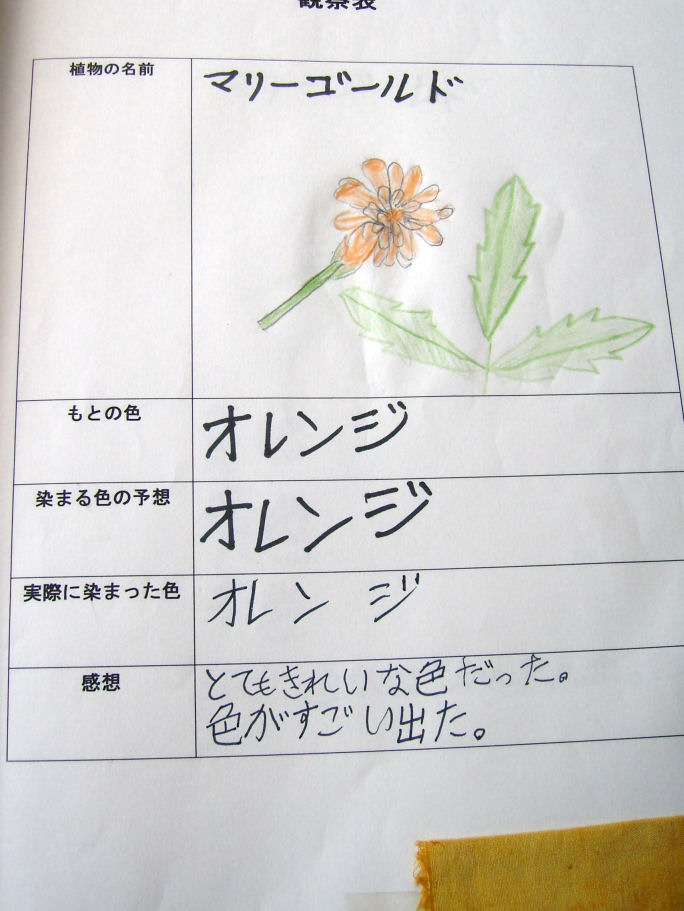 観察表
植物の名前
マリーゴールド
もとの色
オレンジ
染まる色の予想
オレンジ
実際に染まった色
オレンジ
感想
とてもきれいな色だった。
色がすごい出た。